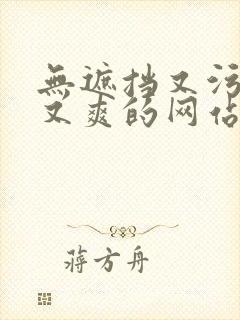 無遮挡又污
又爽的网佔
蔣方舟